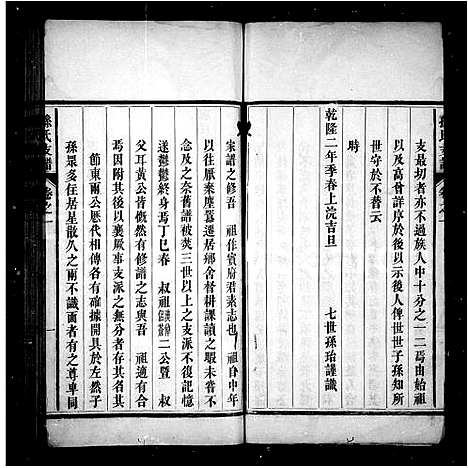 支最切者亦不過族人中十分之一二焉由始祖
以及高曾詳序於後以示後人俾世世子孫知所
世守於不替云
時
乾隆二年季春上浣吉旦
七世孫珆謹識
家譜之修吾 祖作賓府君素志也 祖自中年
以往厭棄塵囂遷居鄉舍督耕課讀之暇未嘗不
念之奈舊譜被燬三世以上支派不復記憶
遂鬱鬱終身焉丁巳春 叔祖 二公暨 叔
父耳黃公皆慨然有修譜之志與吾 祖適有合
焉因附其後以襄厥事支派之無分者存其名其
節東爾公歷代相傳各有確據開具於左然子
孫眾多住居星散久之而不識面者有之尊卑同
孫氏支譜
卷之一
一